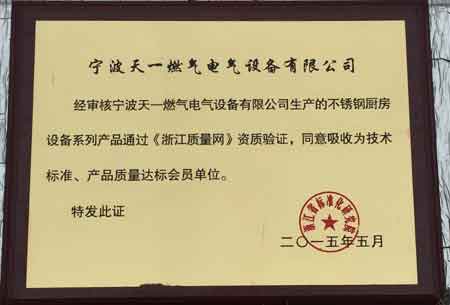 宁波天一燃气电气设备有限公司
经审核宁波天一燃气电气设备有限公司生产的不锈钢厨房
设备系列产品通过《浙江质量网》资质验证，同意吸收为技术
标准、产品质量达标会员单位。
特发此证
浙江省标准化研究院
二〇一五年五月